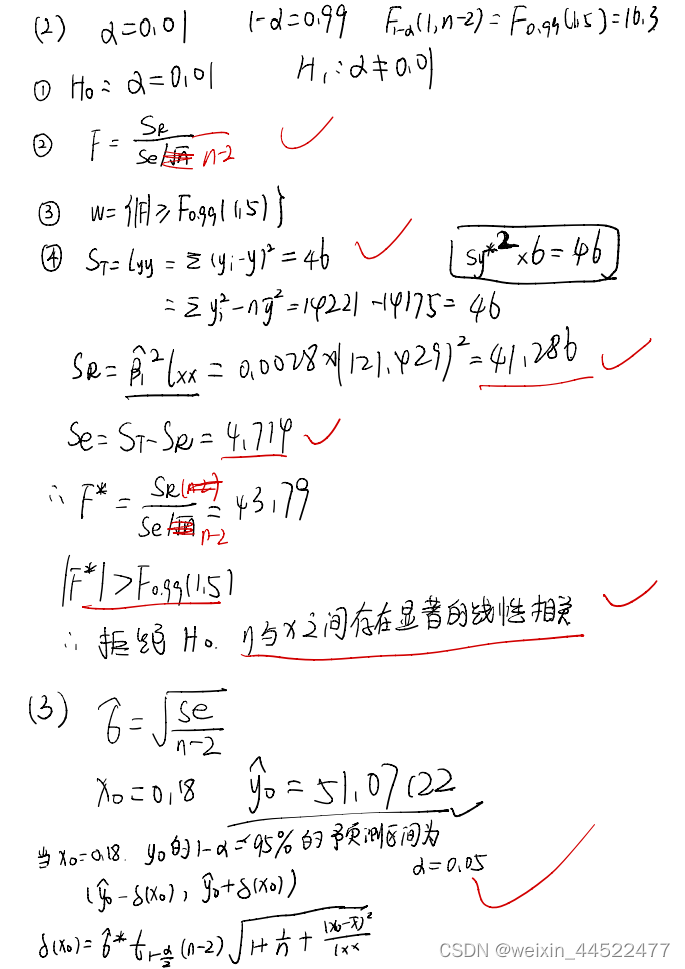 (2) α=0.01 1-α=0.99 F₁₋α(1,n-2)=F₀.₉₉(1,5)=16.3
① H₀: α=0.01 H₁: α≠0.01
② F = SR / (Se/ n-2)
③ W={|F|≥F₀.₉₉(1,5)}
④ ST=lyy=Σ(yi-y)²=46 Sy*²×6=46
=Σyi²-nȳ²=14221-14175=46
SR=β̂₁²lxx=0.0028×(121.429)²=41.286
Se=ST-SR=4.714
∴ F*= SR / (Se/ n-2) =43.79
|F*|>F₀.₉₉(1,5)
∴ 拒绝 H₀. η与x之间存在显著的线性相关
(3) σ̂=√(Se/(n-2))
x₀=0.18 ŷ₀=51.07122
当x₀=0.18. y₀的1-α=95%的预测区间为
α=0.05
(ŷ₀-δ(x₀), ŷ₀+δ(x₀))
δ(x₀)=σ̂* t₁₋α/₂(n-2)√(1+1/n+(x₀-x̄)²/lxx)
CSDN @weixin_44522477